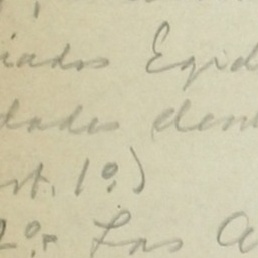 iados Egid
dades den
st. 1º)
2º. Las A